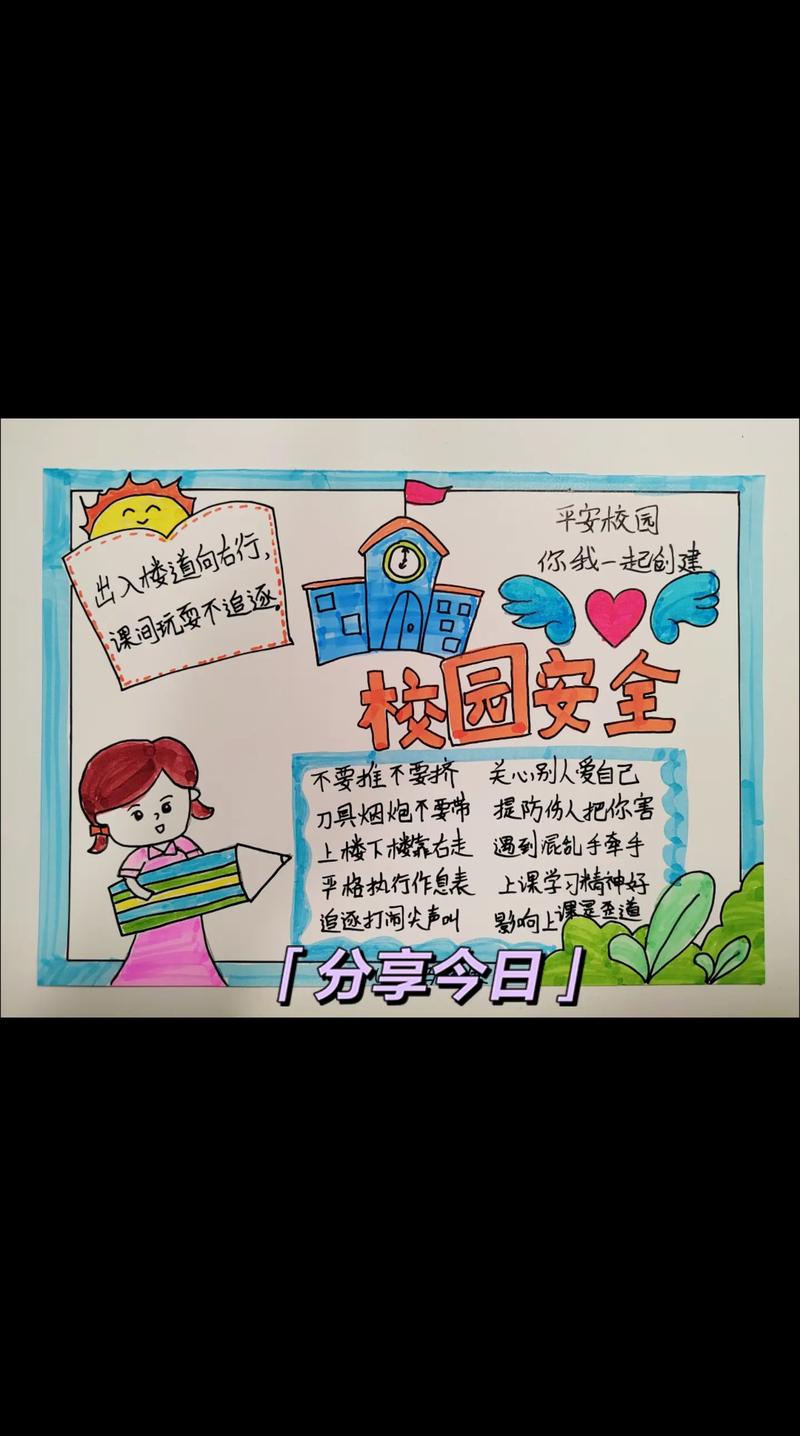 出入楼道向右行，
课间玩耍不追逐。
平安校园
你我一起创建
校园安全
不要推不要挤 关心别人爱自己
刀具烟炮不要带 提防伤人把你害
上楼下楼靠右走 遇到混乱手牵手
严格执行作息表 上课学习精神好
追逐打闹尖声叫 影响上课是歪道
「分享今日」